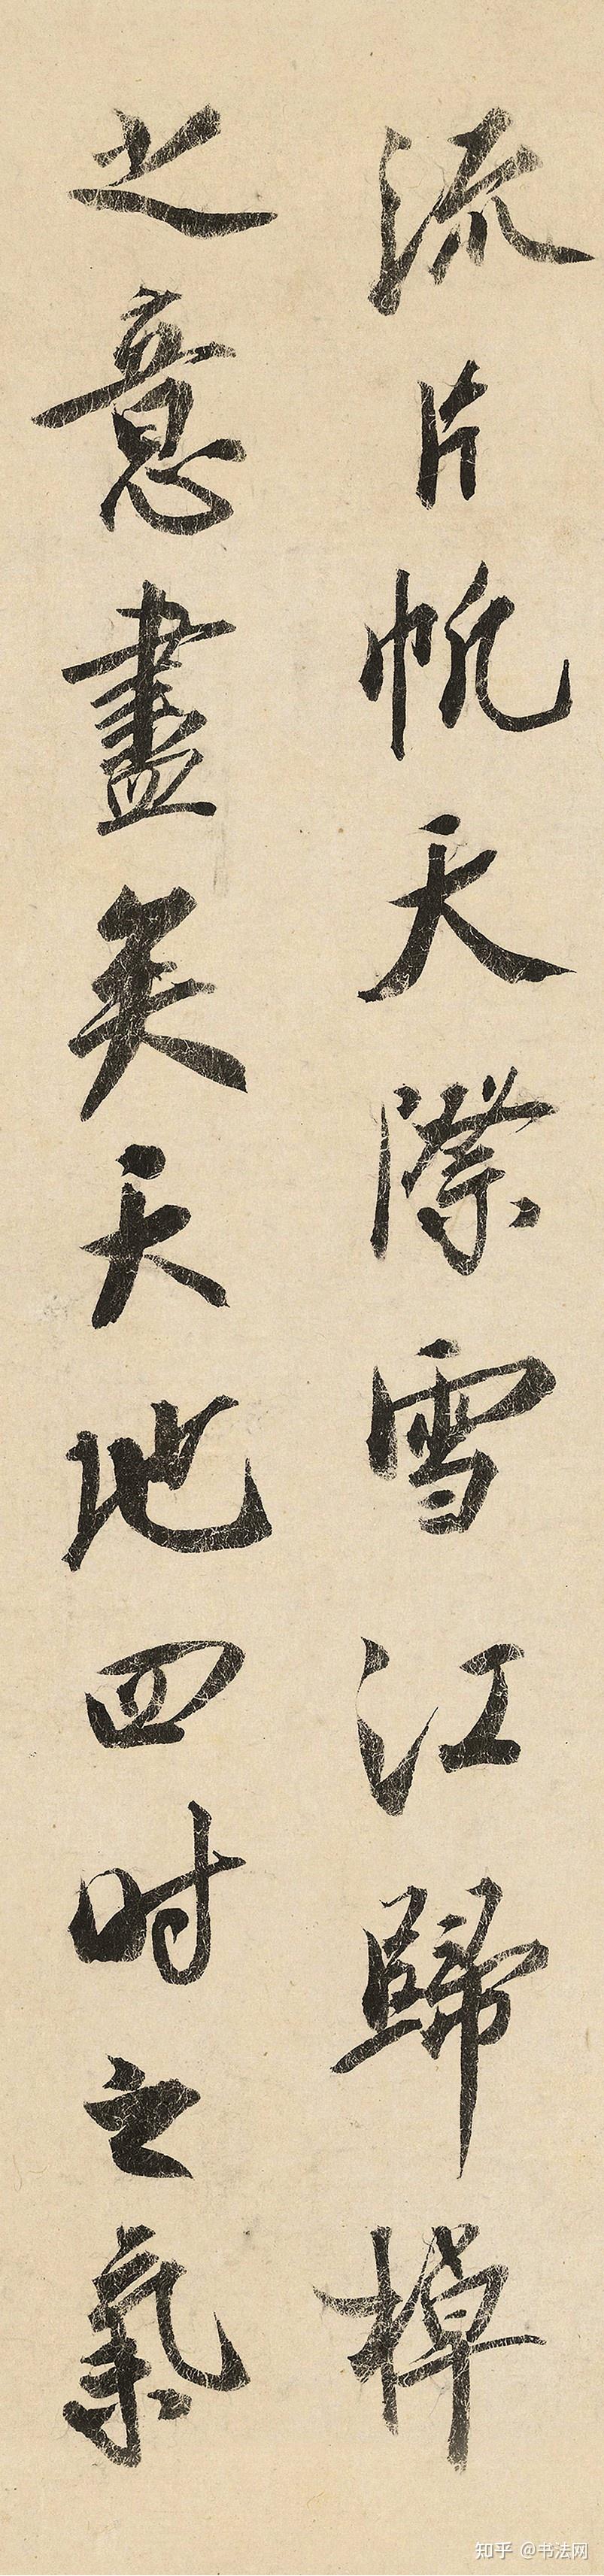 流片帆天際雪江歸棹
之意盡矣天地四时之氣
知乎 @书法网